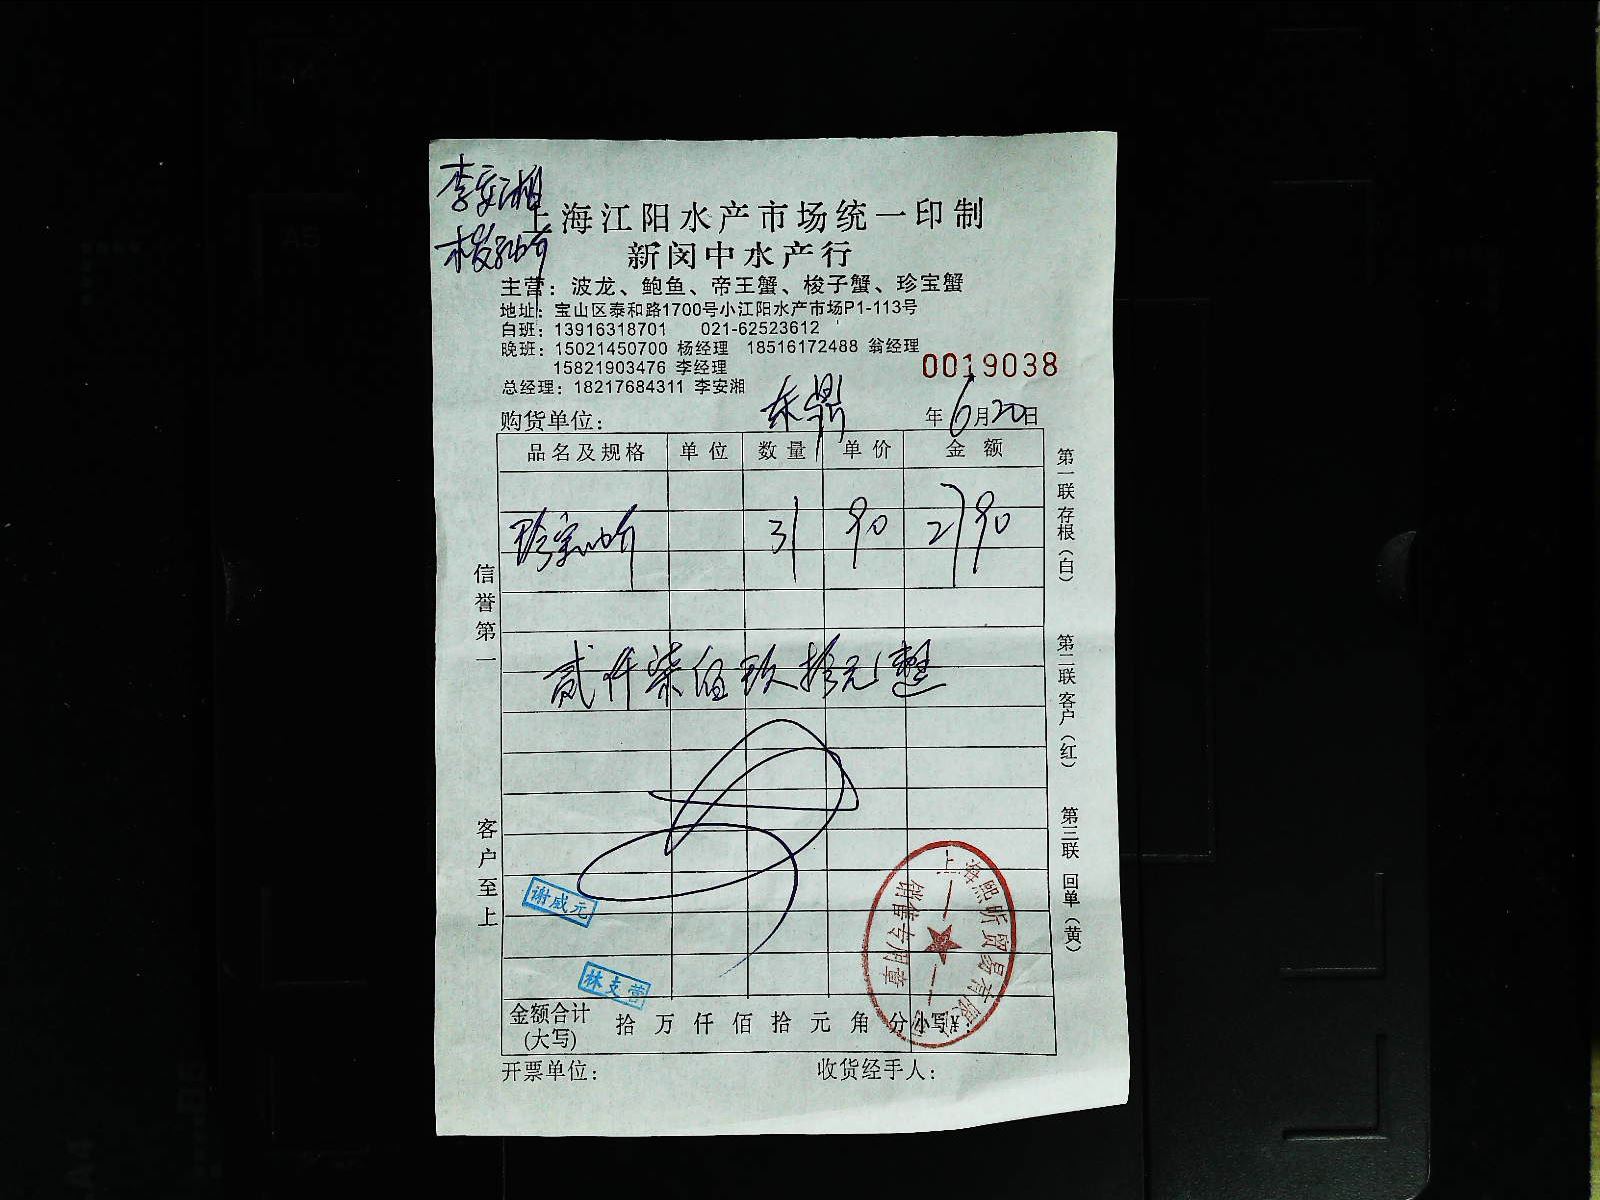 李安湘
梭子蟹
上海江阳水产市场统一印制
新闵中水产行
主营：波龙、鲍鱼、帝王蟹、梭子蟹、珍宝蟹
地址：宝山区泰和路1700号小江阳水产市场P1-113号
白班：13916318701 021-62523612
晚班：15021450700 杨经理 18516172488 翁经理
15821903476 李经理
总经理：18217684311 李安湘
0019038
购货单位： 东鼎 年6月20日
品名及规格 单位 数量 单价 金额
珍宝蟹 31 90 2790
贰仟柒佰玖拾元整
信誉第一
客户至上
第一联 存根（白）
第二联 客户（红）
第三联 回单（黄）
谢威元
林支营
上海熙昕贸易有限公司
销售专用章
金额合计(大写) 拾 万 仟 佰 拾 元 角 分 小写¥：
开票单位： 收货经手人：